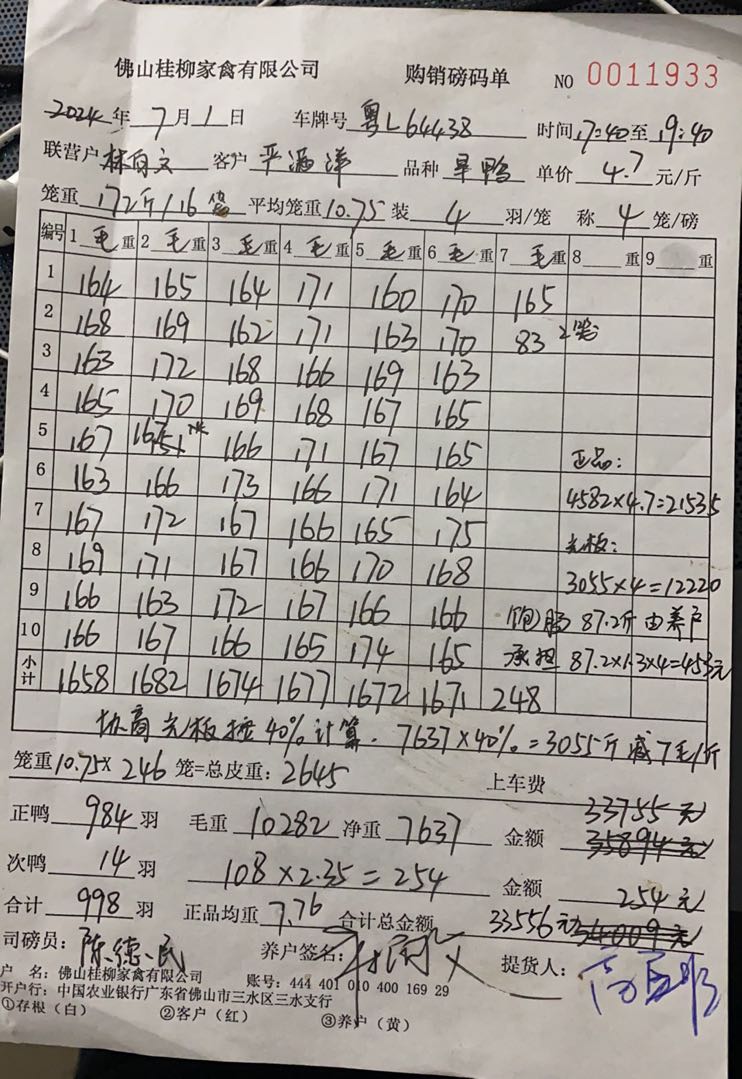 佛山桂柳家禽有限公司 购销磅码单 NO 0011933
2024年7月1日 车牌号 粤L64438 时间17:40至19:40
联营户 林自文 客户 品种 旱鸭 单价 4.7 元/斤
笼重 172斤/16笼 平均笼重10.75 装 4 羽/笼 称 4 笼/磅
编号 1 毛 重 2 毛 重 3 毛 重 4 毛 重 5 毛 重 6 毛 重 7 毛 重 8 重 9 重
1 164 165 164 171 160 170 165
2 168 169 162 171 163 170 83 2笼
3 163 172 168 166 169 163
4 165 170 169 168 167 165
5 167 167 166 171 167 165 正品:
6 163 166 173 166 171 164 4582×4.7=21535
7 167 172 167 166 165 175 光板:
8 169 171 167 166 170 168 3055×4=12220
9 166 163 172 167 166 166 饱肠 87.2斤 由养户
10 166 167 166 165 174 165 承担 87.2×1.3×4=453元
小计 1658 1682 1674 1677 1672 1671 248
协商光板按40%计算. 7637×40%=3055斤 减7毛/斤
笼重10.75×246 笼=总皮重:2645 上车费
33755元
正鸭 984 羽 毛重 10282 净重 7637 金额 35894元
次鸭 14 羽 108×2.35=254 金额 254元
合计 998 羽 正品均重 7.76 合计总金额 33556元 34009元
司磅员: 陈德民 养户签名: 提货人:
户 名:佛山桂柳家禽有限公司 账号:444 401 010 400 169 29
开户行:中国农业银行广东省佛山市三水区三水支行
①存根(白) ②客户(红) ③养户(黄)